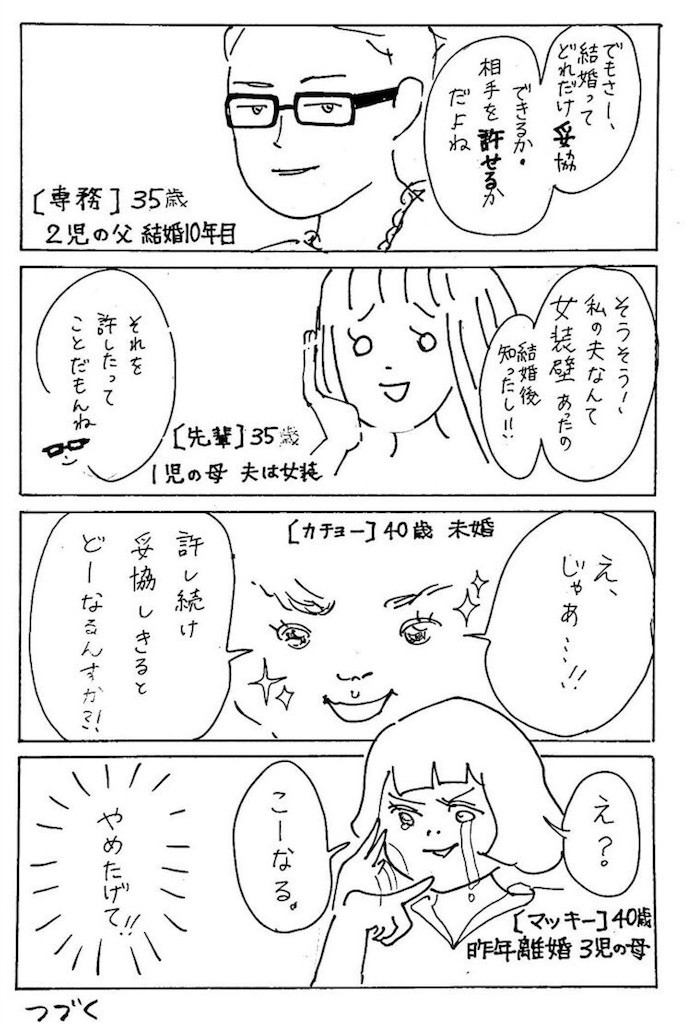 でもさー、
結婚って
どれだけ妥協
できるか・
相手を許せるか
だよね
[専務] 35歳
2児の父 結婚10年目
そうそう!
私の夫なんて
女装壁あったの
結婚後
知ったし!!
それを
許したって
ことだもんね
[先輩] 35歳
1児の母 夫は女装
[カチョー] 40歳 未婚
え、
じゃあ…!!
許し続け
妥協しきると
どーなるんすか?!
え?
こーなる。
[マッキー] 40歳
昨年離婚 3児の母
やめたげて!!
つづく